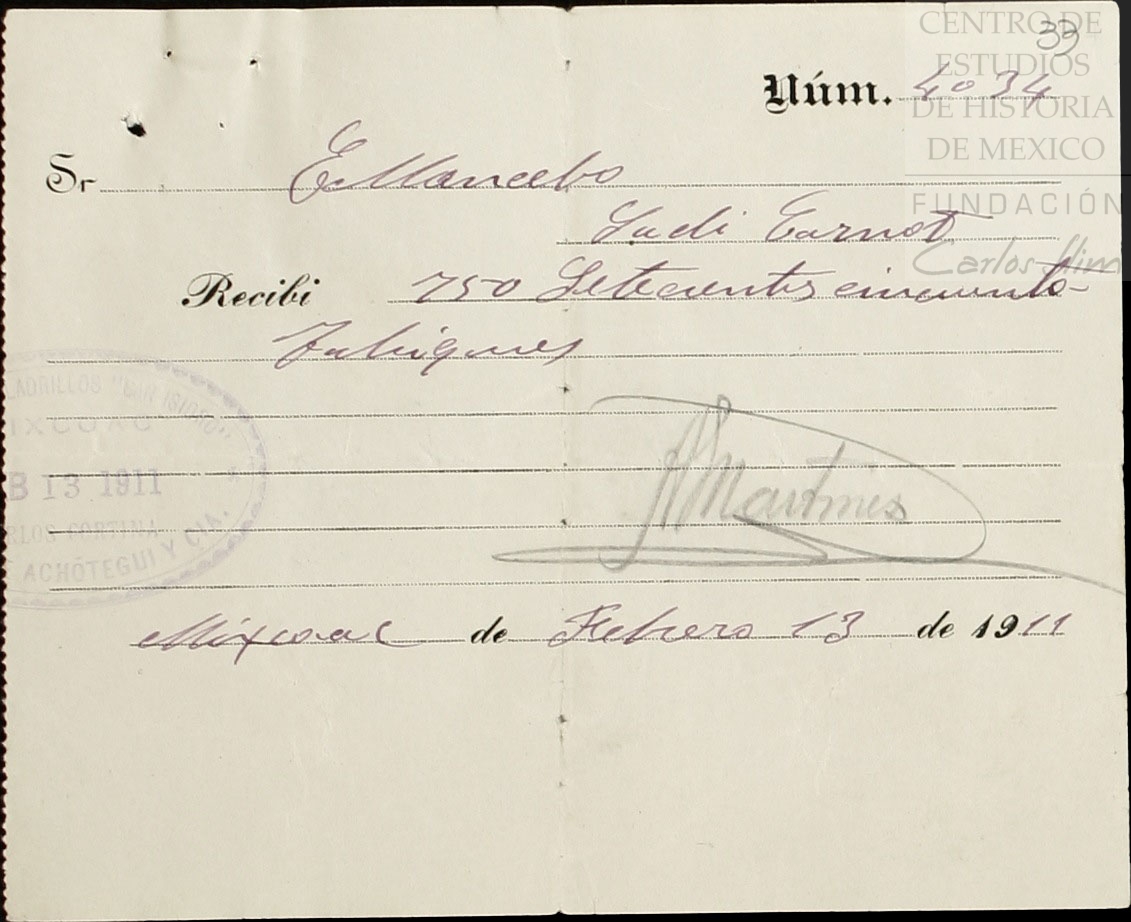 CENTRO DE
ESTUDIOS
DE HISTORIA
DE MEXICO
FUNDACIÓN
Carlos Slim
33
Núm. 4034
Sr E. Mancebo
Sadi Carnot
Recibi 750 Setecientos cincuenta
Tabiques
LADRILLOS "SAN ISIDRO"
IXCOAC
B 13 1911
RLOS CORTINA
ACHÓTEGUI Y CIA.
Martines
Mixcoac de Febrero 13 de 1911